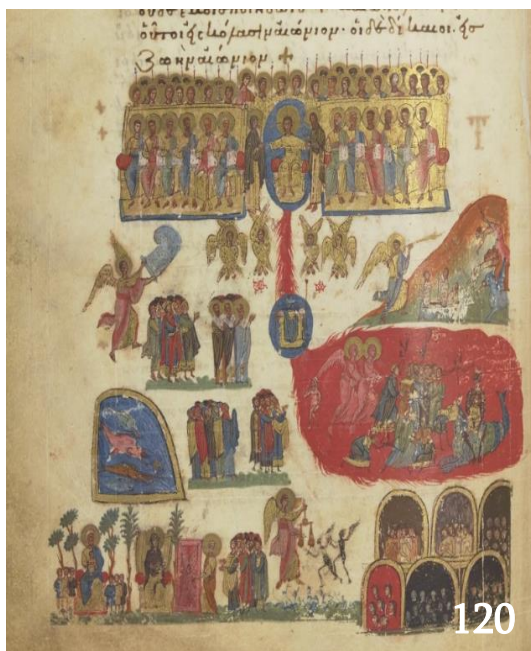 οὗτοι εἰς κόλασιν αἰώνιον· οἱ δὲ δίκαιοι εἰς
ζωὴν αἰώνιον +
Τ
120